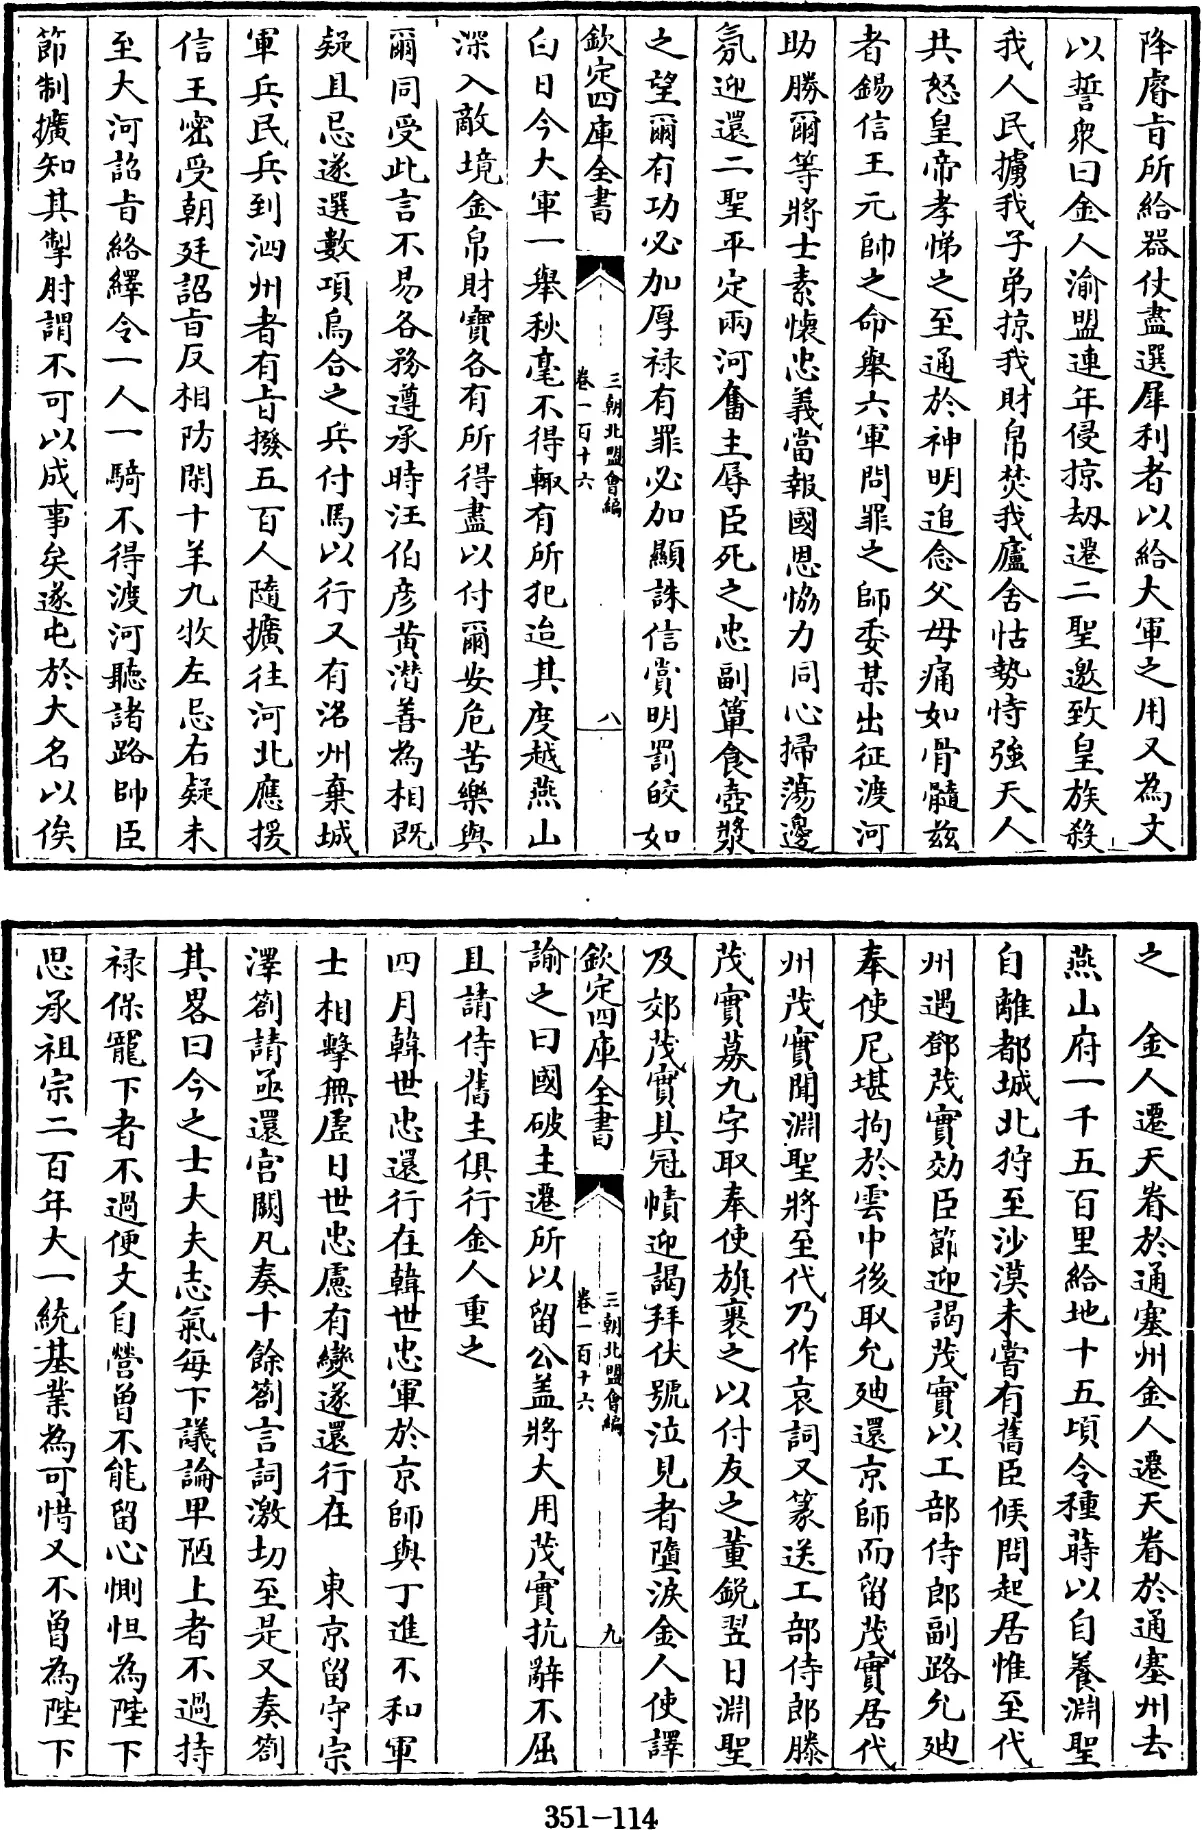 降睿旨所給器仗盡選犀利者以給大軍之用又為文
以誓衆曰金人渝盟連年侵掠刼遷二聖邀致皇族殺
我人民擄我子弟掠我財帛焚我廬舍怙勢恃強天人
共怒皇帝孝悌之至通於神明追念父母痛如骨髓兹
者錫信王元帥之命舉六軍問罪之師委某出征渡河
助勝爾等將士素懷忠義當報國恩恊力同心掃蕩邊
氛迎還二聖平定兩河奮主辱臣死之忠副簞食壺漿
之望爾有功必加厚禄有罪必加顯誅信賞明罰皎如
欽定四庫全書
三朝北盟會編
卷一百十六
八
白日今大軍一舉秋毫不得輙有所犯迨其度越燕山
深入敵境金帛財寶各有所得盡以付爾安危苦樂與
爾同受此言不易各務遵承時汪伯彦黄潜善為相既
疑且忌遂選數項烏合之兵付馬以行又有洺州棄城
軍兵民兵到泗州者有旨撥五百人隨擴往河北應援
信王密受朝廷詔旨反相防閑十羊九牧左忌右疑未
至大河詔旨絡繹令一人一騎不得渡河聽諸路帥臣
節制擴知其掣肘謂不可以成事矣遂屯於大名以俟
之　金人遷天眷於通塞州金人遷天眷於通塞州去
燕山府一千五百里給地十五頃令種蒔以自養淵聖
自離都城北狩至沙漠未嘗有舊臣候問起居惟至代
州遇鄧茂實効臣節迎謁茂實以工部侍郎副路允廸
奉使尼堪拘於雲中後取允廸還京師而留茂實居代
州茂實聞淵聖將至代乃作哀詞又篆送工部侍郎滕
茂實募九字取奉使旗裹之以付友之董鋭翌日淵聖
及郊茂實具冠幘迎謁拜伏號泣見者墮淚金人使譯
欽定四庫全書
三朝北盟會編
卷一百十六
九
諭之曰國破主遷所以留公盖將大用茂實抗辭不屈
且請侍舊主俱行金人重之
四月韓世忠還行在韓世忠軍於京師與丁進不和軍
士相擊無虚日世忠慮有變遂還行在　東京留守宗
澤劄請亟還宫闕凡奏十餘劄言詞激切至是又奏劄
其畧曰今之士大夫志氣每下議論卑陋上者不過持
禄保寵下者不過便文自營曾不能留心惻怛為陛下
思承祖宗二百年大一統基業為可惜又不曾為陛下
351-114